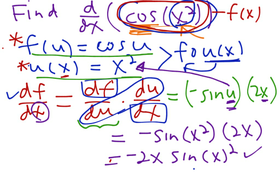 Find d/dx (cos(x²)) → f(x)
* f(u) = cos u > f o u(x)
* u(x) = x²
✓ df/dx = df/du · du/dx = (-sin u)(2x)
= -sin(x²) (2x)
= -2x sin(x)² ✓